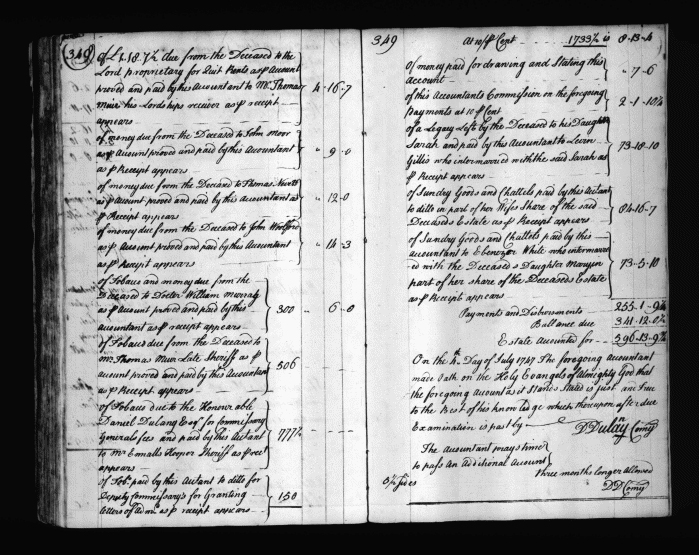 348
of £4.18.7½ due from the Deceased to the
Lord proprietary for Quit Rents as ⅌ Account
proved and paid by this Accountant to Mr. Thomas
Muir his Lordships receiver as ⅌ receipt
appears 4-16-7
of money due from the Deceased to John Moor
as ⅌ Account proved and paid by this Accountant
as ⅌ Receipt appears " 9-0
of money due from the Deceased to Thomas
as ⅌ Account proved and paid by this Accountant as
⅌ Receipt appears " 12-0
of money due from the Deceased to John Woolford
as ⅌ Account proved and paid by this Accountant
as ⅌ Receipt appears " 14-3
of Tobacco and money due from the
Deceased to Docter William Murray
as ⅌ Account proved and paid by this
accountant as ⅌ receipt appears 300 " 6-0
of Tobacco due from the Deceased to
Mr. Thomas Muir Late Sheriff as ⅌
account proved and paid by this Accountant
as ⅌ Receipt appears 506
of Tobacco due to the Honourable
Daniel Dulany Esqr. for Commissary
Generals fees and paid by this Acctant
to Mr. Emalls Hooper Sheriff as ⅌ rect
appears 777½
of Tobo. paid by this Acctant to ditto for
Deputy Commissarys for Granting
letters of Adm. as ⅌ receipt appears 150
349
At 10/ ⅌ Cent 1733½ is 8-13-4
of money paid for drawing and Stating this
Account " 7-6
of this Accountants Commission on the foregoing
payments at 10 ⅌ Cent 2-1-10¼
of a Legacy Left by the Deceased to his Daughter
Sarah and paid by this Accountant to Levin
Gillis who intermarried with the said Sarah as
⅌ Receipt appears 73-10-10
of Sundry Goods and Chattels paid by this Acctant
to ditto in part of her Wifes Share of the said
Deceaseds Estate as ⅌ Receipt appears 84-16-7
of Sundry Goods and Chattels paid by this
accountant to Ebenezer White who intermarri
ed with the Deceaseds Daughter Mary in
part of her share of the Deceaseds Estate
as ⅌ Receipt appears 73-5-10
Payments and Disbursments 255-1-9¼
Ballance due 341-12-0½
Estate Accounted for 596-13-9¾
On the 4th. Day of July 1747 The foregoing accountant
made Oath on the Holy Evangels of Almighty God that
the foregoing Account as it stands Stated is just and True
to the Best of his knowledge which thereupon after due
Examination is past by D Dulany Comry
The Accountant prays time
to pass An Additional Account
three months longer allowed
DD Comry